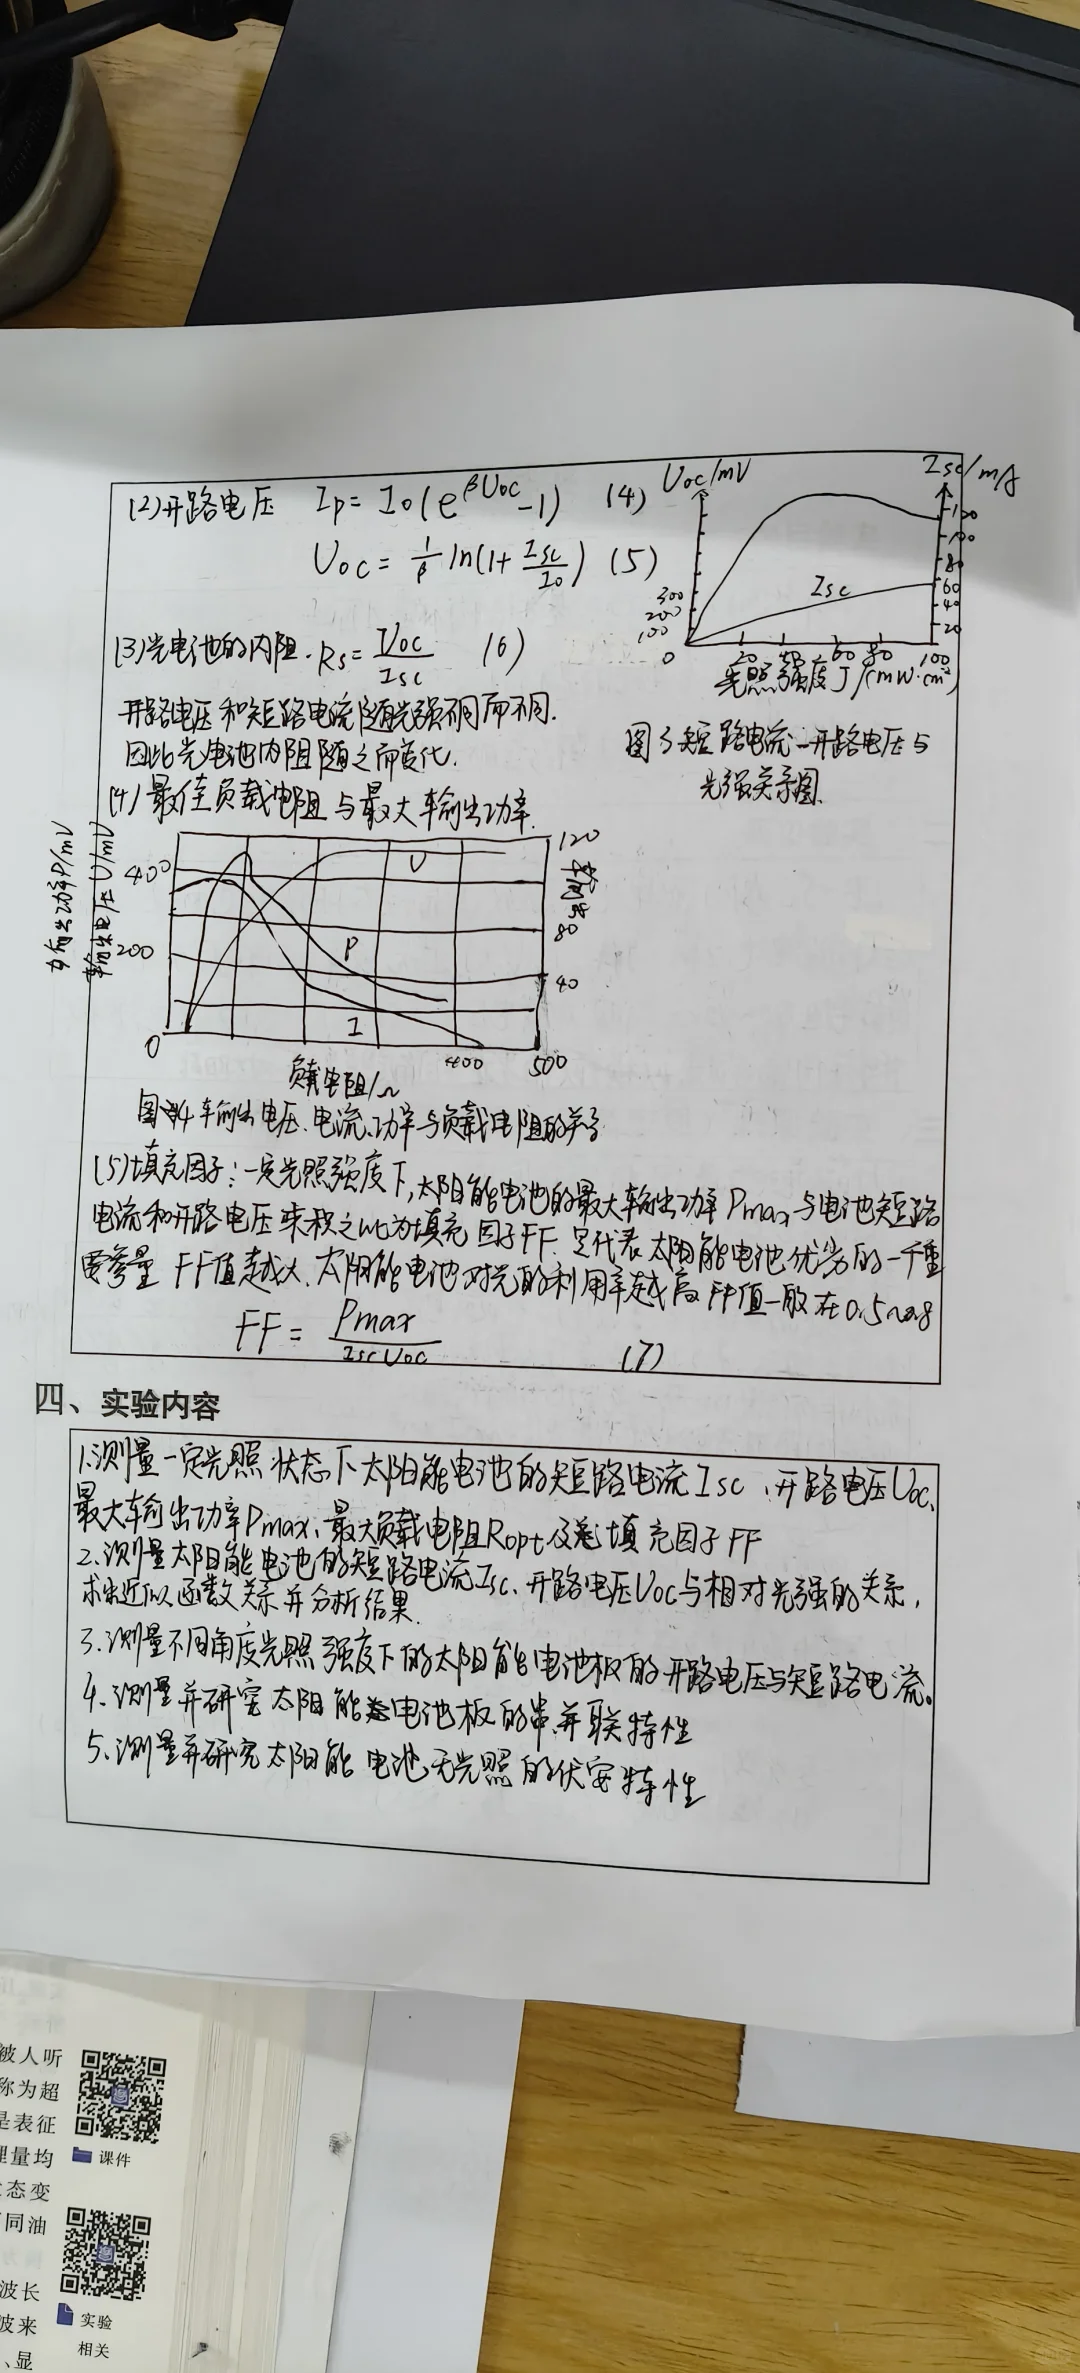 (2)开路电压 Ip=Io(e^βUoc-1) (4)
Uoc=1/β ln(1+Isc/Io) (5)
Uoc/mV
Isc/mA
300
200
100
0
Isc
120
100
80
60
40
20
20 40 60 80 100
光照强度J/(mW·cm²)
图3短路电流—开路电压与
光强关系图.
(3)光电池的内阻. Rs=Uoc/Isc (6)
开路电压和短路电流随光强不同而不同.
因此光电池内阻随之而变化.
(4)最佳负载电阻与最大输出功率.
输出功率P/mV
输出电压U/mV
400
200
0
U
P
I
120
80
40
400 500
负载电阻/Ω
图4输出电压、电流、功率与负载电阻的关系
(5)填充因子:一定光照强度下,太阳能电池的最大输出功率Pmax与电池短路
电流和开路电压乘积之比为填充因子FF.是代表太阳能电池优劣的一个重
要参量 FF值越大.太阳能电池对光的利用率越高 FF值一般在0.5~0.8
FF=Pmax/IscUoc (7)
四、实验内容
1.测量一定光照状态下太阳能电池的短路电流Isc、开路电压Uoc、
最大输出功率Pmax、最大负载电阻Ropt及填充因子FF
2.测量太阳能电池的短路电流Isc、开路电压Uoc与相对光强的关系,
求出近似函数关系并分析结果.
3.测量不同角度光照强度下的太阳能电池板的开路电压与短路电流。
4.测量并研究太阳能电池板的串、并联特性
5.测量并研究太阳能电池无光照的伏安特性
被人听
称为超
是表征
理量均
态变
同油
波长
波来
、显
课件
实验
相关